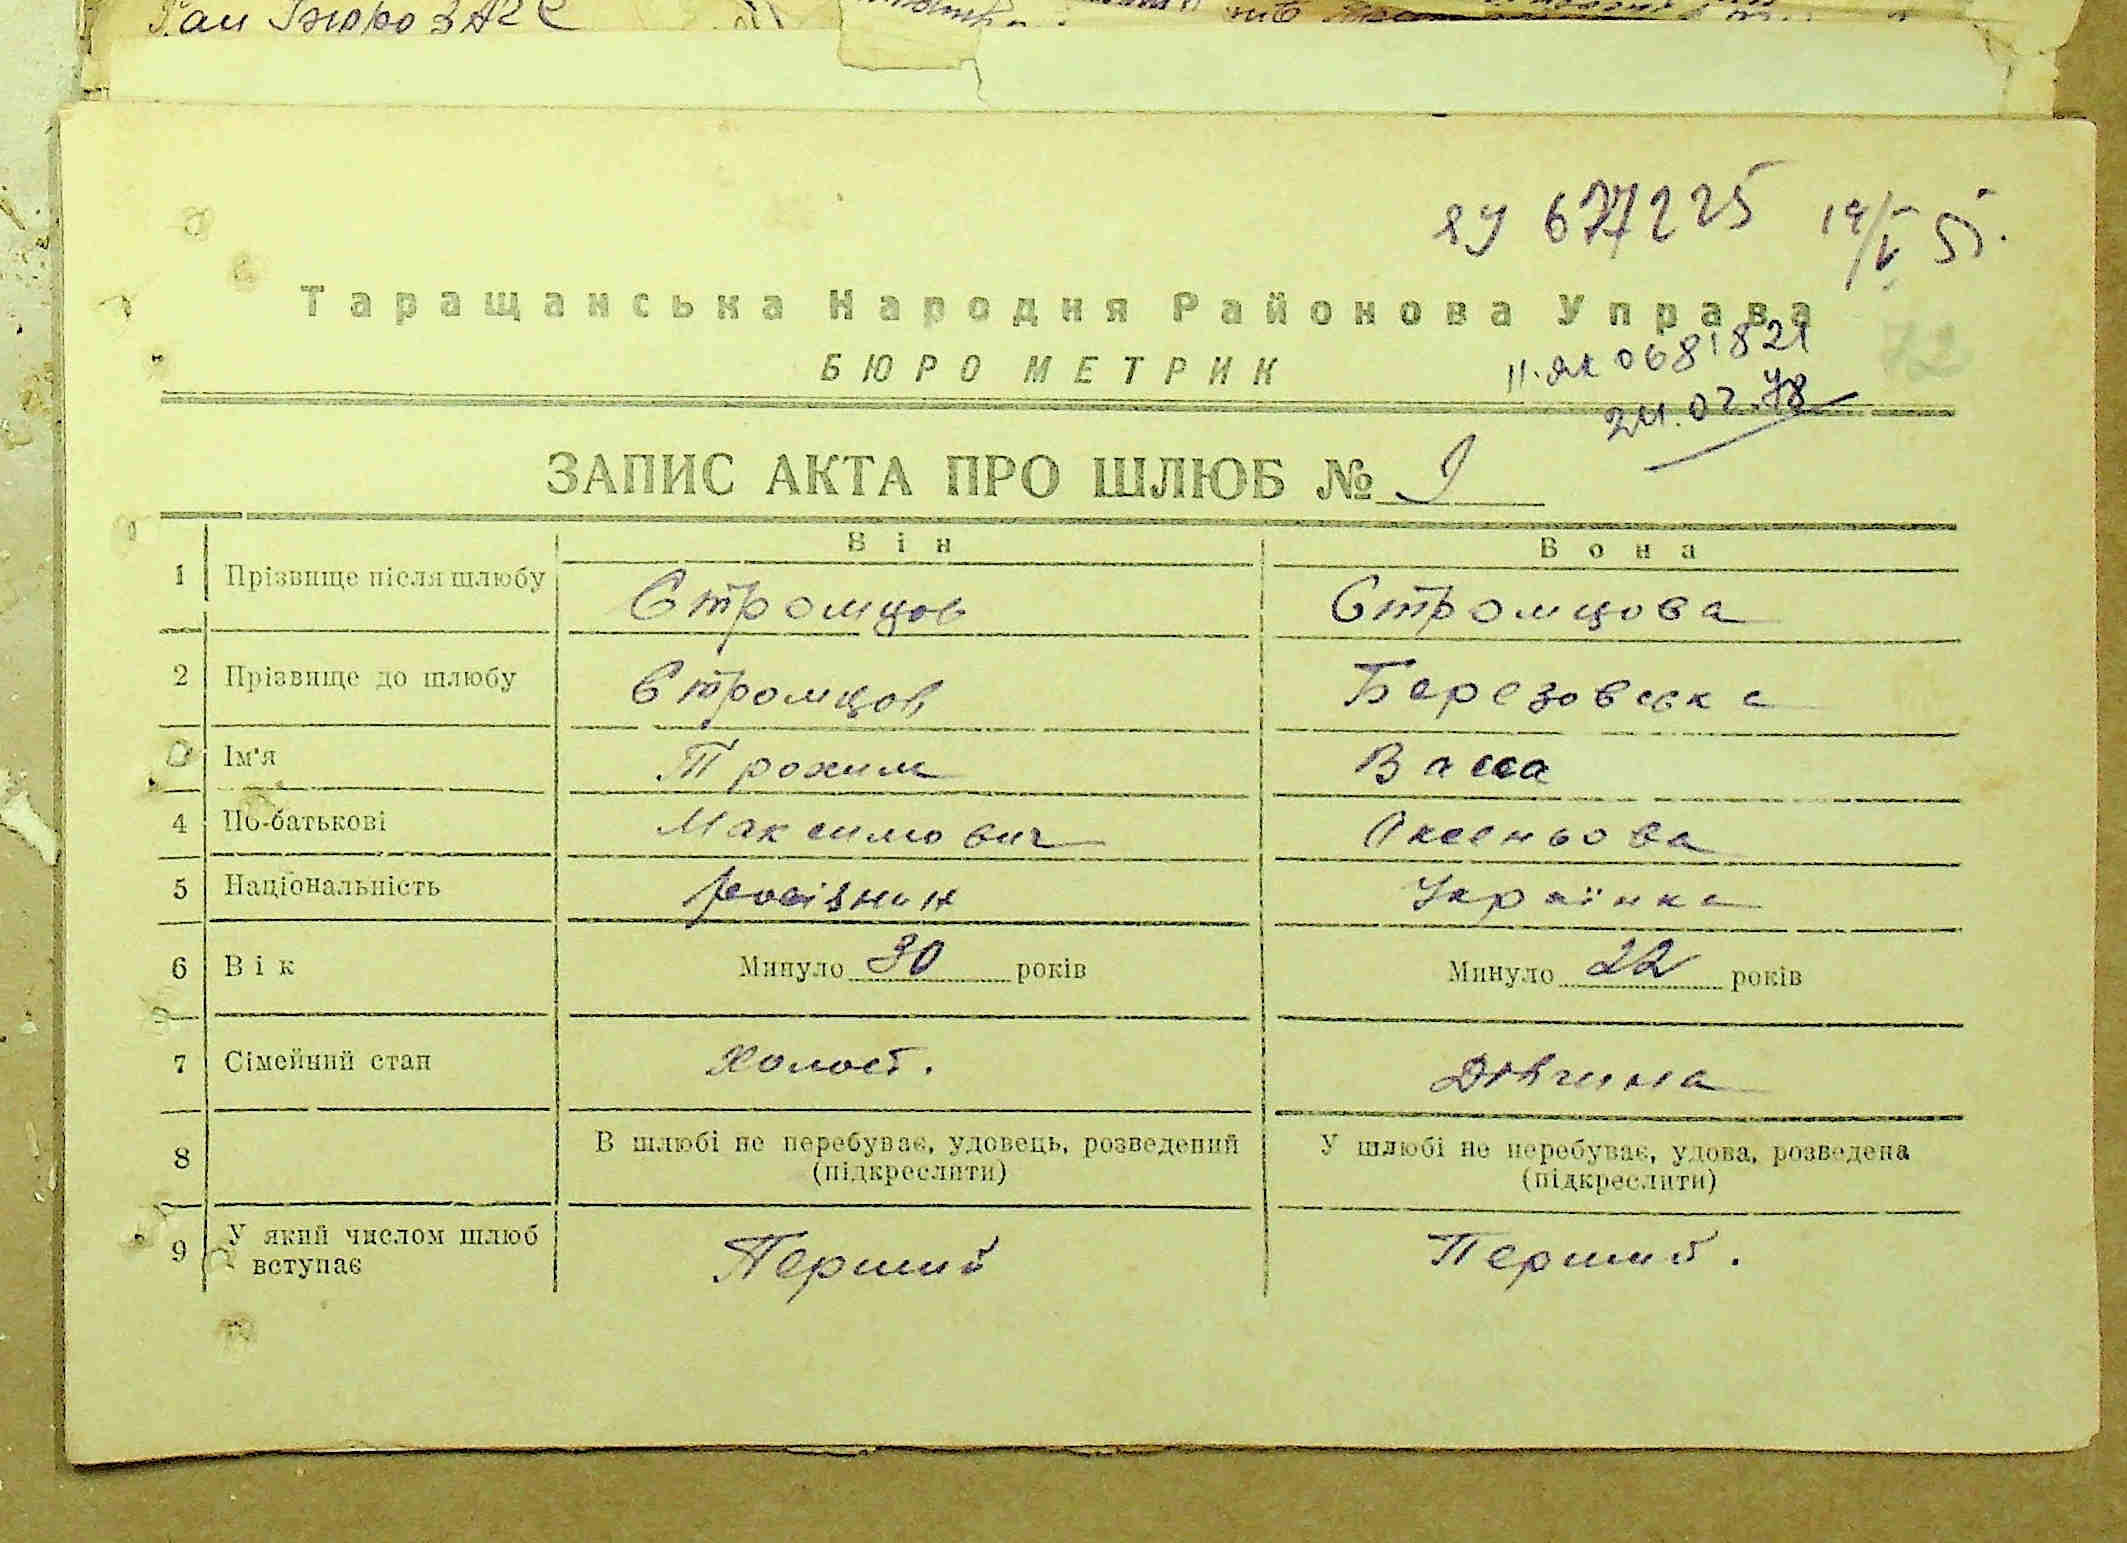 Рай Бюро ЗАГС
ЯУ 677225 19/V 55.
Таращанська Народня Районова Управа
БЮРО МЕТРИК
72
II-
0681821
24.02.78
ЗАПИС АКТА ПРО ШЛЮБ № 9
Він Вона
1 Прізвище після шлюбу Стромцов Стромцова
2 Прізвище до шлюбу Стромцов Березовська
Ім'я Трохим Васса
4 По-батькові Максимович Оксеньова
5 Національність росіянин Українка
6 Вік Минуло 30 років Минуло 22 років
7 Сімейний стан Холост. Дівчина
8 В шлюбі не перебуває, удовець, розведений У шлюбі не перебуває, удова, розведена
(підкреслити) (підкреслити)
9 У який числом шлюб Перший Перший.
вступає